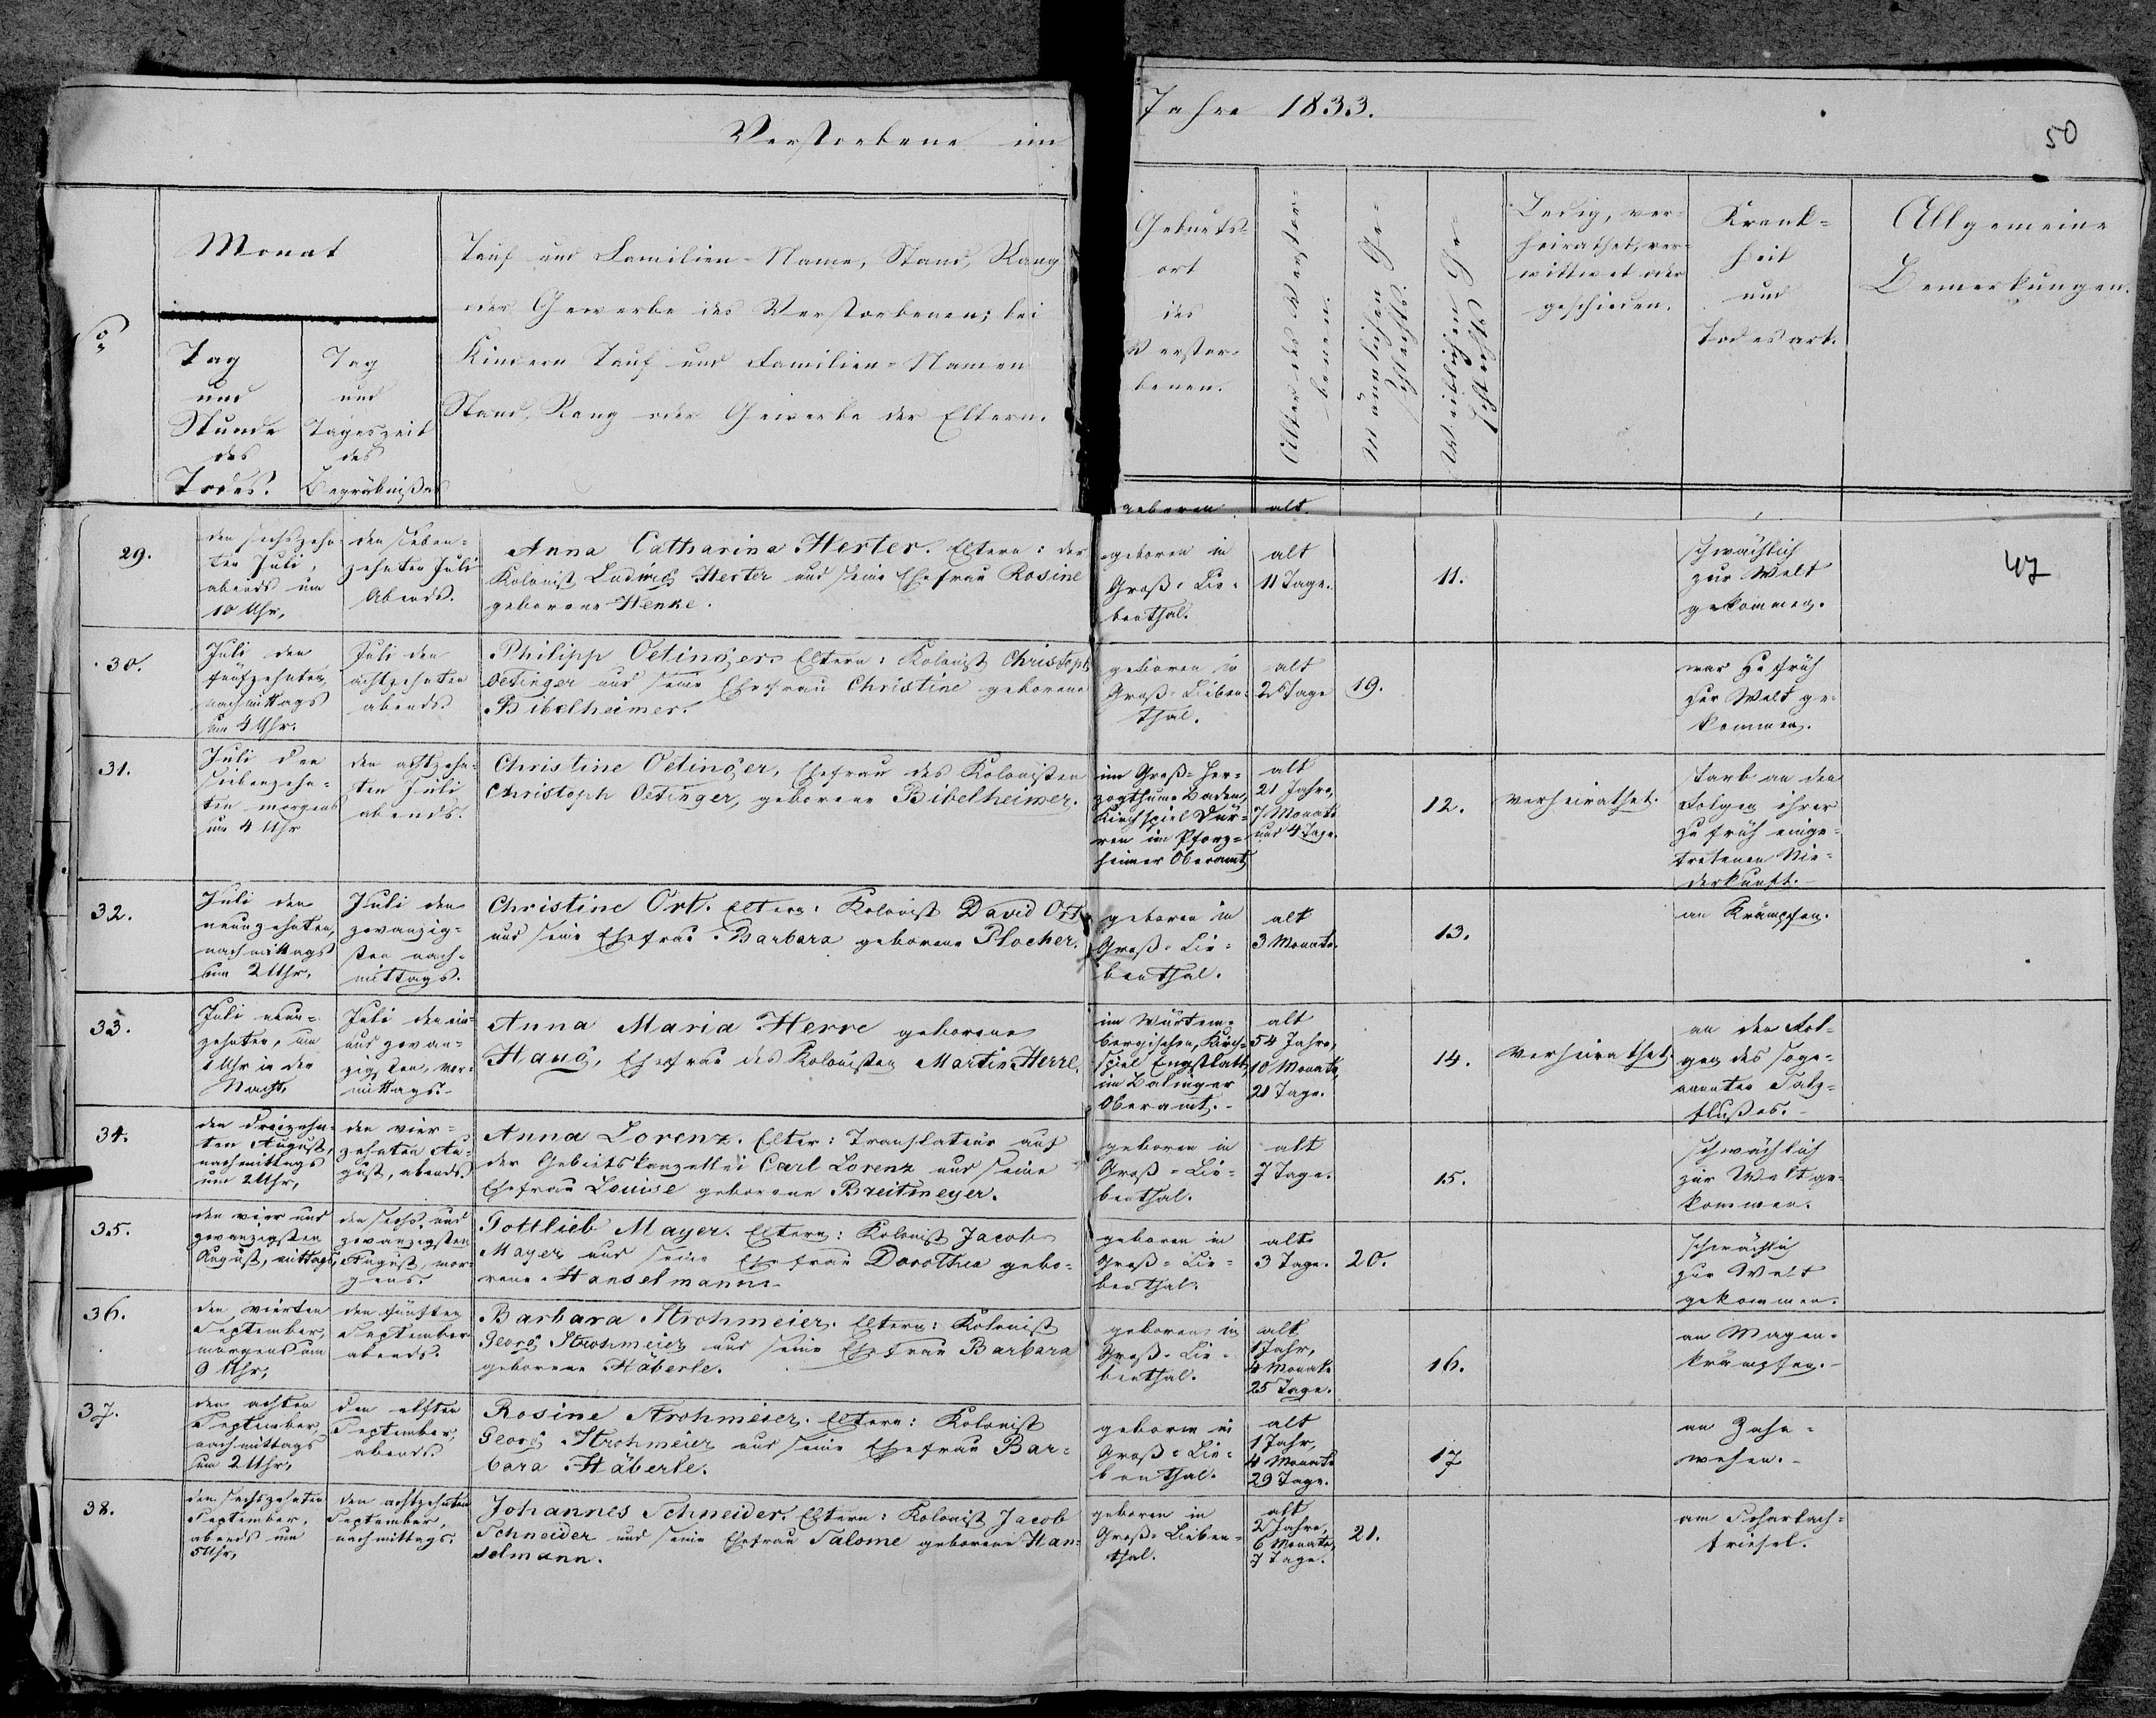 Verstorbene im
Jahre 1833.
50
No
Monat
Tag
und
Stunde
des
Todes.
Tag
und
Tageszeit
des
Begräbnißes
Tauf und Familien-Name, Stand, Rang
oder Gewerbe des Verstorbenen; bei
Kindern Tauf und Familien-Namen
Stand, Rang oder Gewerbe der Eltern.
Geburts-
ort
des
Verstor-
benen.
Alter des Verstor-
benen.
Männlichen Ge-
schlechts.
Weiblichen Ge-
schlechts
Ledig, ver-
heirathet, ver-
wittwet oder
geschieden.
Krank-
heit
und
Todesart.
Allgemeine
Bemerkungen.
geboren alt
29.
den sechszehn-
ten Juli,
abends um
10 Uhr,
den sieben-
zehnten Juli
Abends.
Anna Catharina Herter. Eltern: der
Kolonist Ludwig Herter und seine Ehefrau Rosine
geborene Henke.
geboren in
Groß-Lie-
benthal.
alt
11 Tage.
11.
schwächlich
zur Welt
gekommen.
47
30.
Juli den
fünfzehnten
nachmittags
um 4 Uhr.
Juli den
achtzehnten
abends.
Philipp Oetinger. Eltern: Kolonist Christoph
Oetinger und seine Ehefrau Christine geborene
Bibelheimer.
geboren in
Groß-Lieben-
thal.
alt
Tage
19.
war zu früh
zur Welt ge-
kommen.
31.
Juli den
siebenzehn-
ten morgens
um 4 Uhr
den achtzehn-
ten Juli
abends.
Christine Oetinger, Ehefrau des Kolonisten
Christoph Oetinger, geborene Bibelheimer.
im Groß-Her-
zogthume Baden,
Kirchspiel Dür-
ren im Pforz-
heimer Oberamt
alt
21 Jahre,
7 Monate
und 4 Tage.
12.
verheirathet.
starb an den
Folgen ihrer
zu früh einge-
tretenen Nie-
derkunft.-
32.
Juli den
neunzehnten,
nachmittags
um 2 Uhr,
Juli den
zwanzig-
sten nach-
mittags.
Christine Ort. Eltern: Kolonist David Ort
und seine Ehefrau Barbara geborene Plocher.
geboren in
Groß-Lie-
benthal.
alt
3 Monate.
13.
an Krämpfen.
33.
Juli neun-
zehnten, um
1 Uhr in der
Nacht,
Juli den ein
und zwan-
zigsten, vor-
mittags.-
Anna Maria Herre geborene
Haug, Ehefrau des Kolonisten Martin Herre.
im Würtem-
bergischen, Kirch-
spiel Engstlatt,
im Balinger
Oberamt.-
alt
54 Jahre,
10 Monate,
21 Tage.
14.
verheirathet.
an den Fol-
gen des soge-
nannten Salz-
flußes.-
34.
den dreizehn-
ten August,
nachmittags
um 2 Uhr,
den vier-
zehnten Au-
gust, abends.
Anna Lorenz. Elter: Translateur auf
der Gebietskanzellei Carl Lorenz und seine
Ehefrau Louise geborene Breitmeyer.
geboren in
Groß-Lie-
benthal.
alt
7 Tage.
15.
schwächlich
zur Welt ge-
kommen.
35.
den vier und
zwanzigsten
August, mittags,
den sechs und
zwanzigsten
August, mor-
gens.
Gottlieb Mayer. Eltern: Kolonist Jacob
Mayer und seine Ehefrau Dorothea gebo-
rene Hanselmann.
geboren in
Groß-Lie-
benthal.
alt
3 Tage.
20.
schwächlich
zur Welt
gekommen.
36.
den vierten
September,
morgens um
9 Uhr,
den fünften
September
abends.
Barbara Strohmeier. Eltern: Kolonist
Georg Strohmeier und seine Ehefrau Barbara
geborene Häberle.
geboren in
Groß-Lie-
benthal.
alt
1 Jahr,
4 Monate
25 Tage.
16.
an Magen-
krämpfen.-
37.
den achten
September,
nachmittags
um 2 Uhr,
den elften
September,
abends.
Rosine Strohmeier. Eltern: Kolonist
Georg Strohmeier und seine Ehefrau Bar-
bara Häberle.
geboren in
Groß-Lie-
benthal.
alt
1 Jahr,
4 Monate
29 Tage.
17
an Zahn-
wehen.-
38.
den sechszehnten
September,
abends um
5 Uhr,
den achtzehnten
September,
nachmittags.
Johannes Schneider. Eltern: Kolonist Jacob
Schneider und seine Ehefrau Salome geborene Han-
selmann.
geboren in
Groß-Lieben-
thal.
alt
2 Jahre,
6 Monate,
7 Tage.
21.
am Scharlach-
friesel.